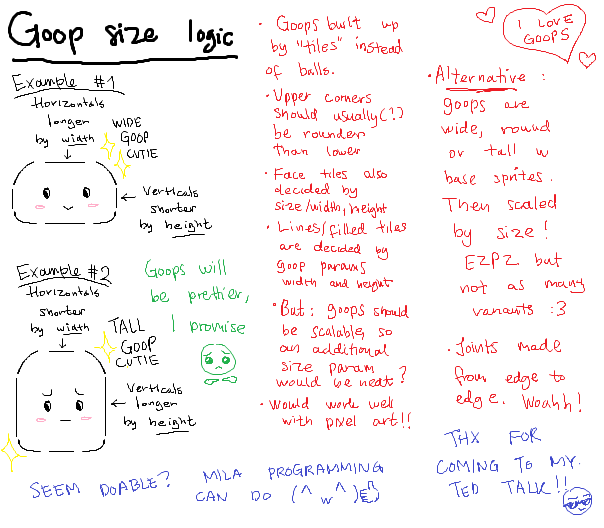 Goop size logic
Example #1
Horizontals
longer
by width
WIDE
GOOP
CUTIE
← Verticals
shorter
by height
Example #2
Horizontals
shorter
by width
TALL
GOOP
CUTIE
← Verticals
longer
by height
Goops will
be prettier,
I promise
• Goops built up
by "tiles" instead
of balls.
• Upper corners
should usually(?)
be rounder
than lower
• Face tiles also
decided by
size/width, height
• Lines/filled tiles
are decided by
goop params
width and height
• But: goops should
be scalable, so
an additional
size param
would be neat?
• Would work well
with pixel art!!
I LOVE
GOOPS
• Alternative:
goops are
wide, round
or tall w
base sprites.
Then scaled
by size!
EZPZ but
not as many
variants :3
• Joints made
from edge to
edge. Woahh!
SEEM DOABLE? MILA PROGRAMMING
CAN DO (^w^)
THX FOR
COMING TO MY
TED TALK!!